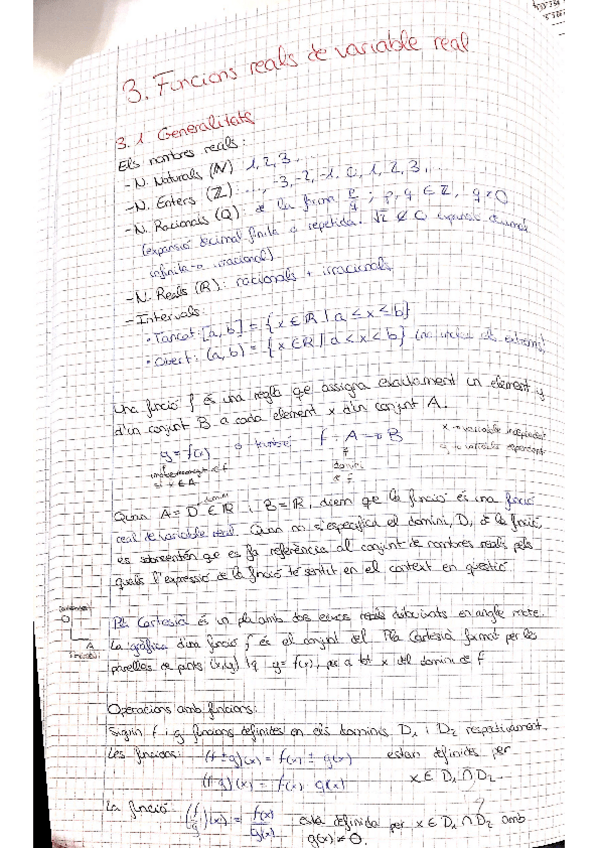 3. Funcions reals de variable real
3.1 Generalitats
Els nombres reals:
- N. Naturals (N) 1, 2, 3...
- N. Enters (Z): ..., -3, -2, -1, 0, 1, 2, 3, ...
- N. Racionals (Q) de la forma p/q ; p, q ∈ Z, q ≠ 0
(expansió decimal finita o repetida. √2 ∉ Q expansió decimal
infinita → irracional)
- N. Reals (R): racionals + irracionals
- Intervals:
• Tancat: [a, b] = {x ∈ R | a ≤ x ≤ b}
• Obert: (a, b) = {x ∈ R | a < x < b} (no inclou els extrems)
Una funció f és una regla que assigna exactament un element y
d'un conjunt B a cada element x d'un conjunt A.
y = f(x) o també f: A → B x → variable independent
y → variable dependent
domini
de f
domini
Quan A = D ⊂ R i B = R, diem que la funció és una funció
real de variable real. Quan no s'especifica el domini, D, de la funció,
es sobreentén que es fa referència al conjunt de nombres reals pels
quals l'expressió de la funció té sentit en el context en qüestió
Pla Cartesià és un pla amb dos eixos reals en angle recte.
La gràfica d'una funció f és el conjunt del Pla Cartesià format per les
parelles de punts (x,y) tq y = f(x), per a tot x del domini de f
Operacions amb funcions:
Siguin f i g funcions definides en els dominis D₁ i D₂ respectivament.
Les funcions: (f±g)(x) = f(x) ± g(x) estan definides per
(f·g)(x) = f(x) · g(x) x ∈ D₁ ∩ D₂
La funció (f/g)(x) = f(x)/g(x) està definida per x ∈ D₁ ∩ D₂ amb
g(x) ≠ 0.